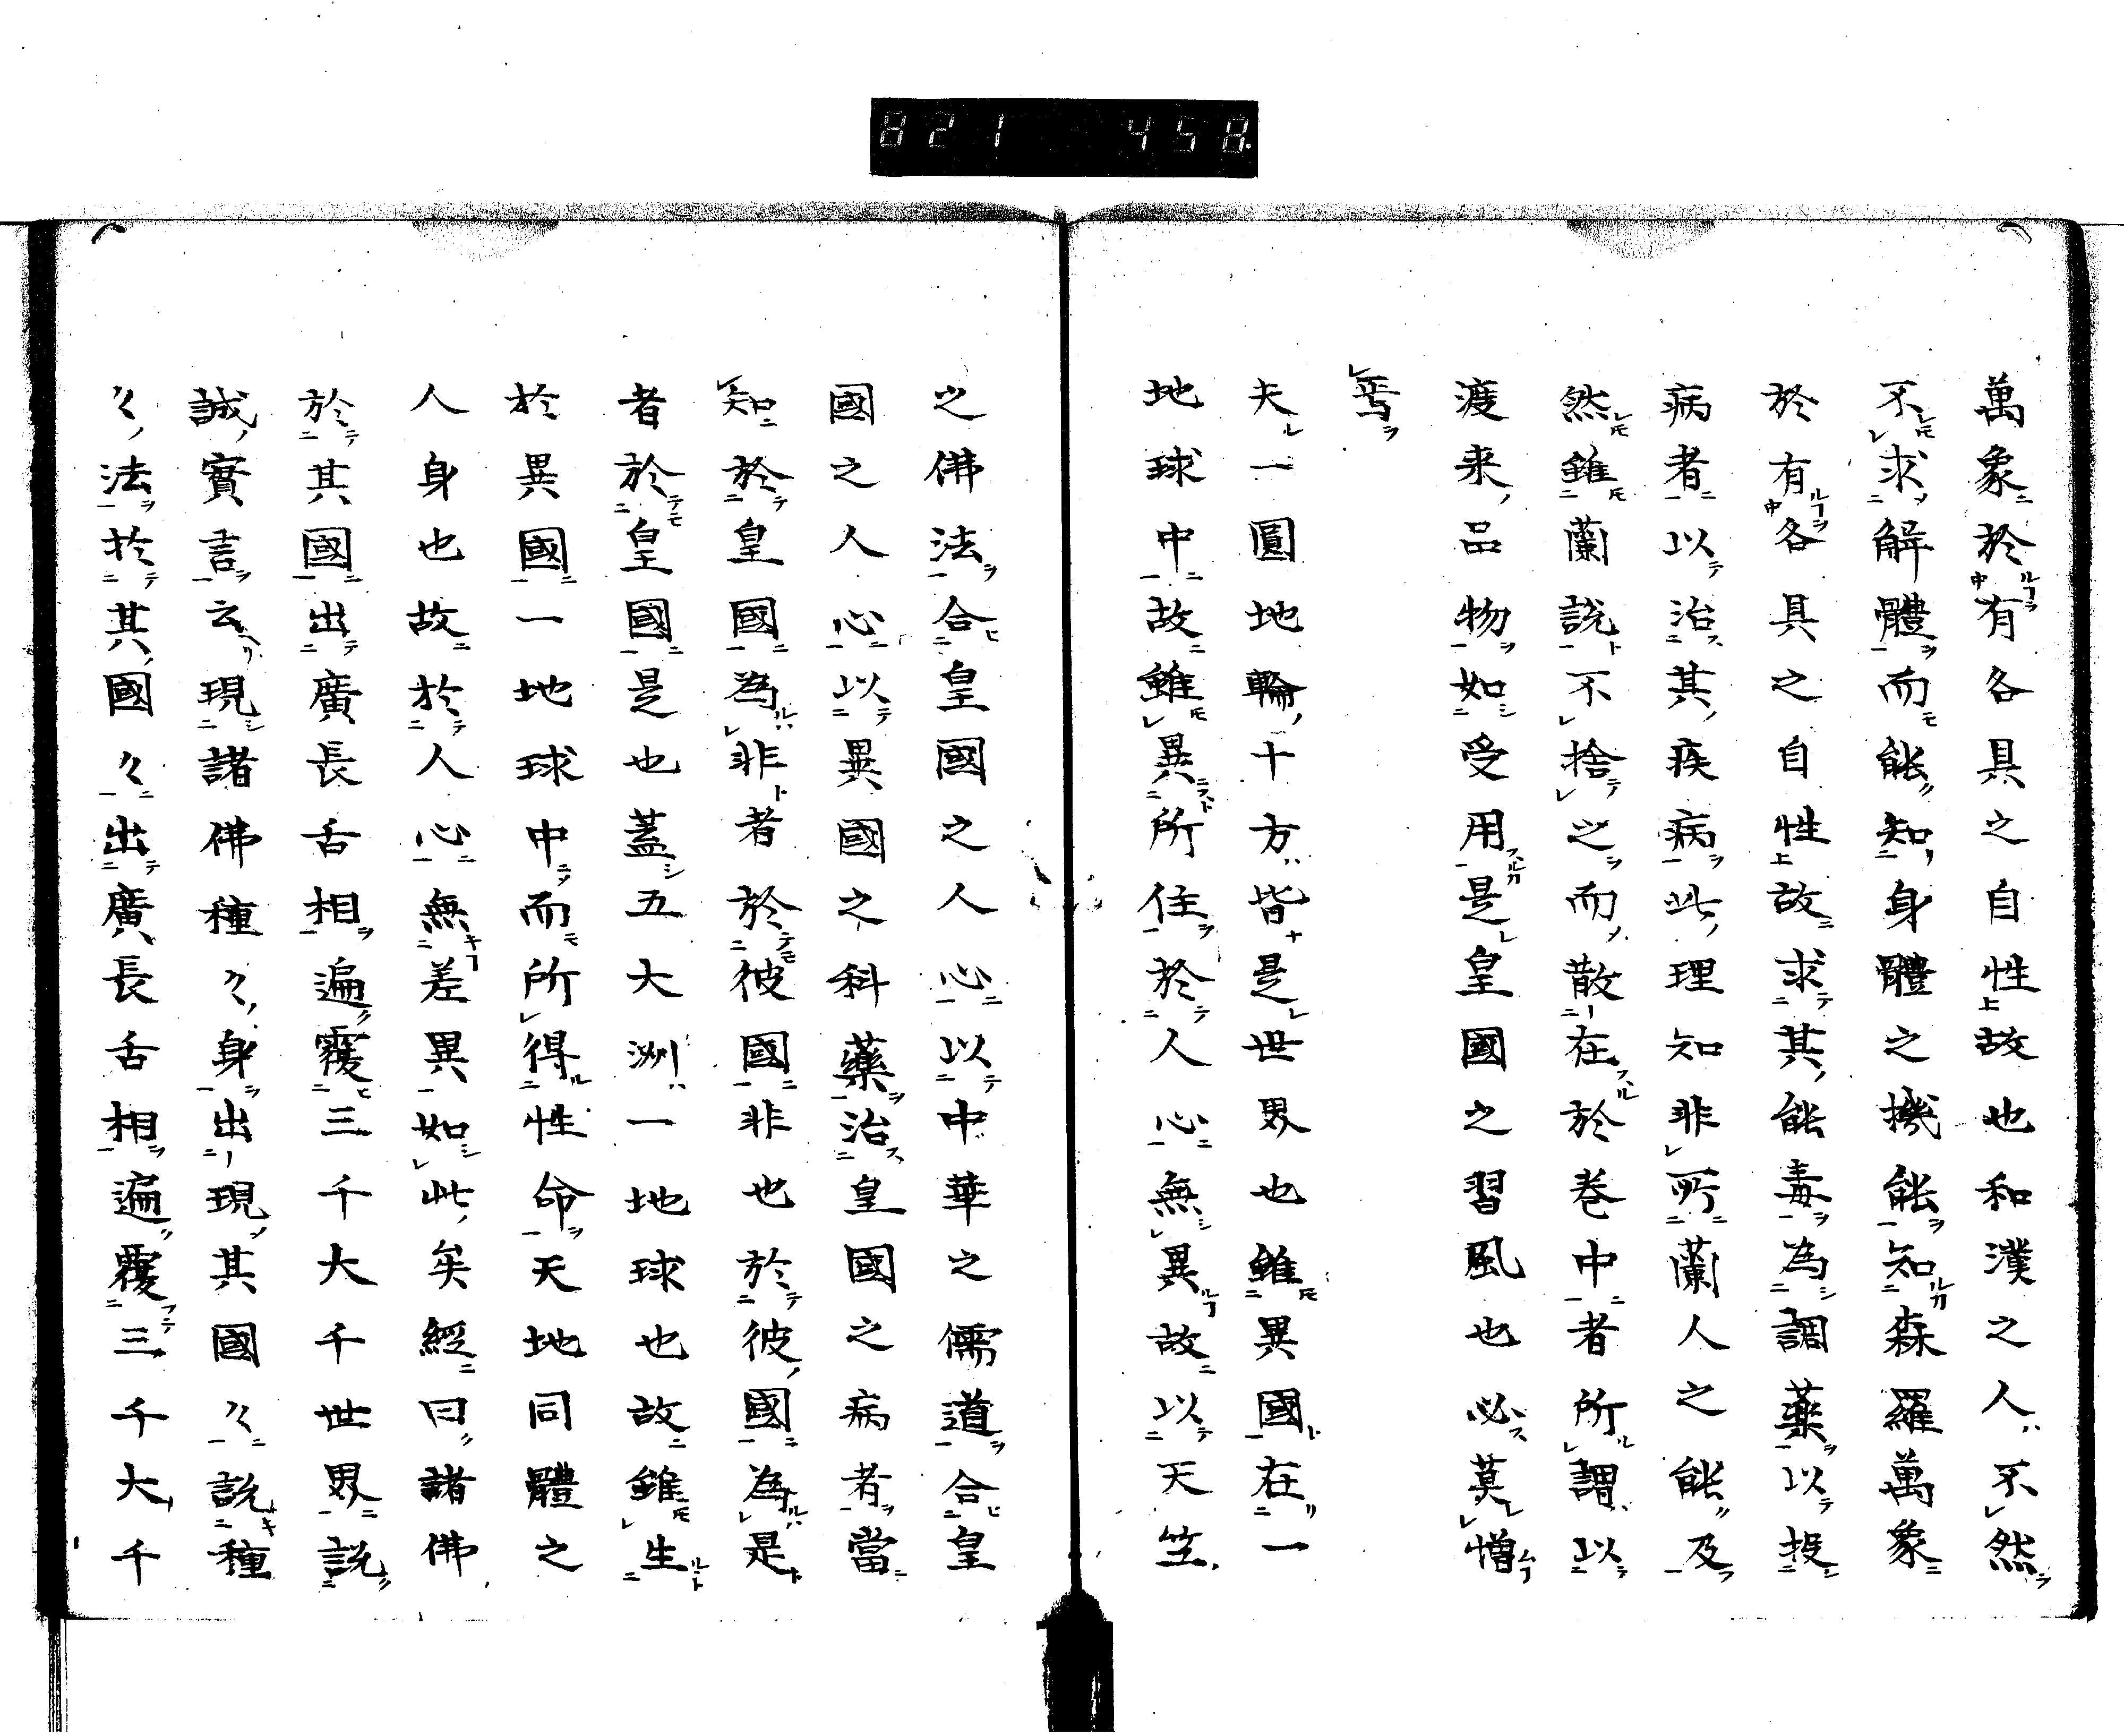 821 458
萬象於有各具之自性故也和漢之人不然
不求解體而能知身體之機能知森羅萬象
於有各具之自性故求其能毒為調藥以投
病者以治其疾病此理知非所蘭人之能及
然雖蘭説不捨之而散在於巻中者所謂以
渡来品物如受用是皇國之習風也必莫憎
焉
夫一圓地輪十方皆是世界也雖異國在一
地球中故雖異所住於人心無異故以天竺
之佛法合皇國之人心以中華之儒道合皇
國之人心以異國之科藥治皇國之病者當
知於皇國為非者於彼國非也於彼國為是
者於皇國是也蓋五大洲一地球也故雖生
於異國一地球中而所得性命天地同體之
人身也故於人心無差異如此矣經曰諸佛
於其國出廣長舌相遍覆三千大千世界説
誠實言云現諸佛種々身出現其國々説種
々法於其國々出廣長舌相遍覆三千大千